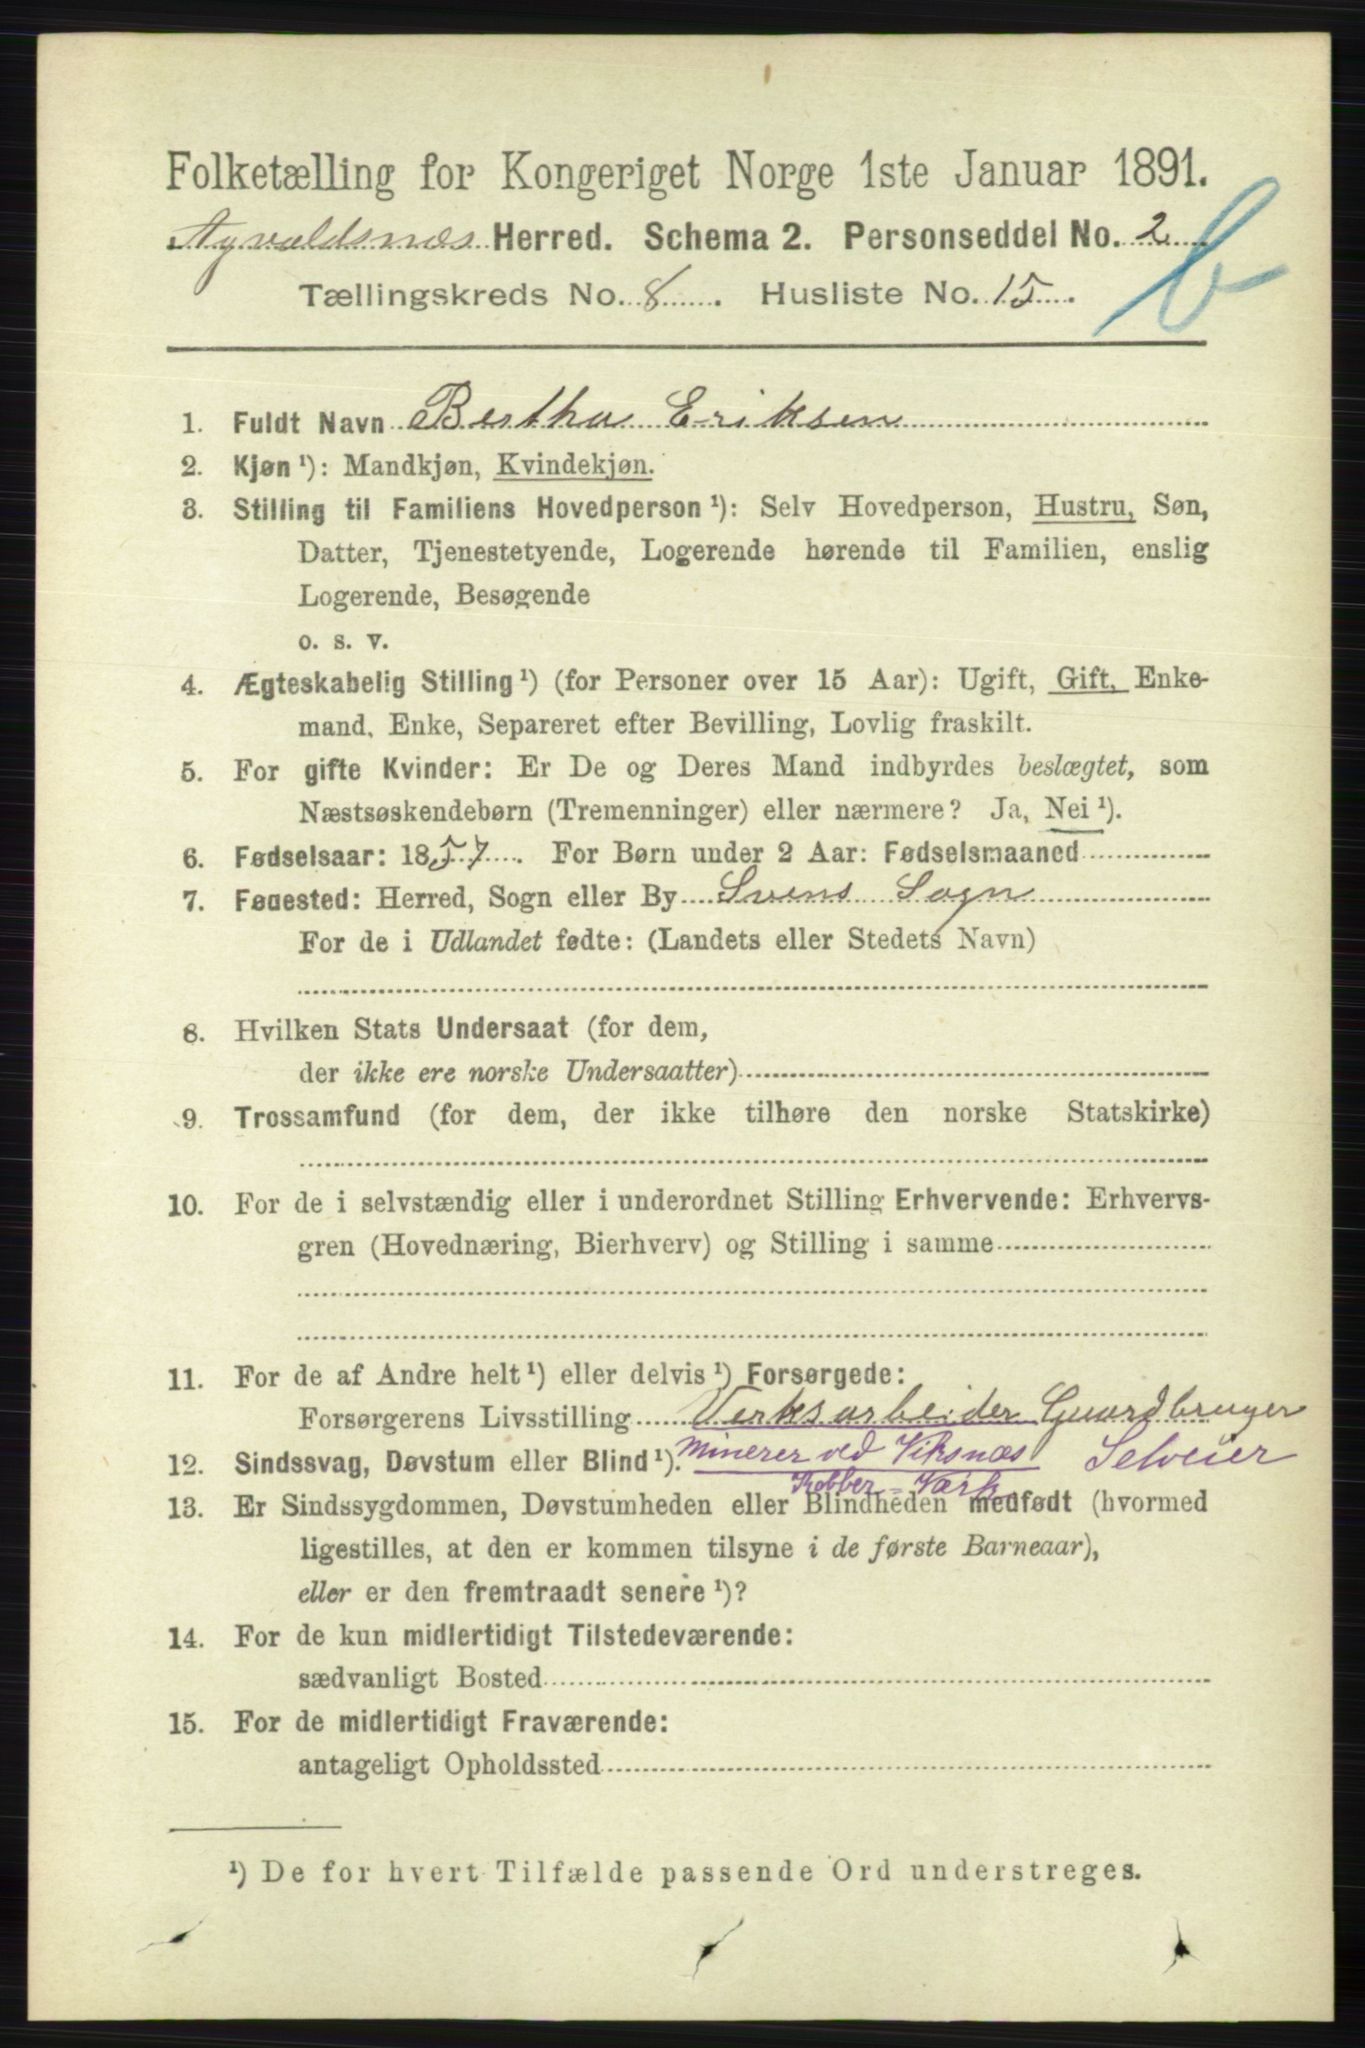 Folketælling for Kongeriget Norge 1ste Januar 1891.
Agvaldsnæs Herred. Schema 2. Personseddel No. 2
b
Tællingskreds No. 8. Husliste No. 15.
1. Fuldt Navn Bertha Eriksen
2. Kjøn ¹): Mandkjøn, Kvindekjøn.
3. Stilling til Familiens Hovedperson ¹): Selv Hovedperson, Hustru, Søn,
Datter, Tjenestetyende, Logerende hørende til Familien, enslig
Logerende, Besøgende
o. s. v.
4. Ægteskabelig Stilling ¹) (for Personer over 15 Aar): Ugift, Gift, Enke-
mand, Enke, Separeret efter Bevilling, Lovlig fraskilt.
5. For gifte Kvinder: Er De og Deres Mand indbyrdes beslægtet, som
Næstsøskendebørn (Tremenninger) eller nærmere? Ja, Nei ¹).
6. Fødselsaar: 1857. For Børn under 2 Aar: Fødselsmaaned
7. Fødested: Herred, Sogn eller By Svens Sogn
For de i Udlandet fødte: (Landets eller Stedets Navn)
8. Hvilken Stats Undersaat (for dem,
der ikke ere norske Undersaatter)
9. Trossamfund (for dem, der ikke tilhøre den norske Statskirke)
10. For de i selvstændig eller i underordnet Stilling Erhvervende: Erhvervs-
gren (Hovednæring, Bierhverv) og Stilling i samme
11. For de af Andre helt ¹) eller delvis ¹) Forsørgede:
Forsørgerens Livsstilling Verksarbeider Guardbruger
12. Sindssvag, Døvstum eller Blind ¹). Minerer ved Viksnæs Selveier
Kobber-Værk
13. Er Sindssygdommen, Døvstumheden eller Blindheden medfødt (hvormed
ligestilles, at den er kommen tilsyne i de første Barneaar),
eller er den fremtraadt senere ¹)?
14. For de kun midlertidigt Tilstedeværende:
sædvanligt Bosted
15. For de midlertidigt Fraværende:
antageligt Opholdssted
¹) De for hvert Tilfælde passende Ord understreges.